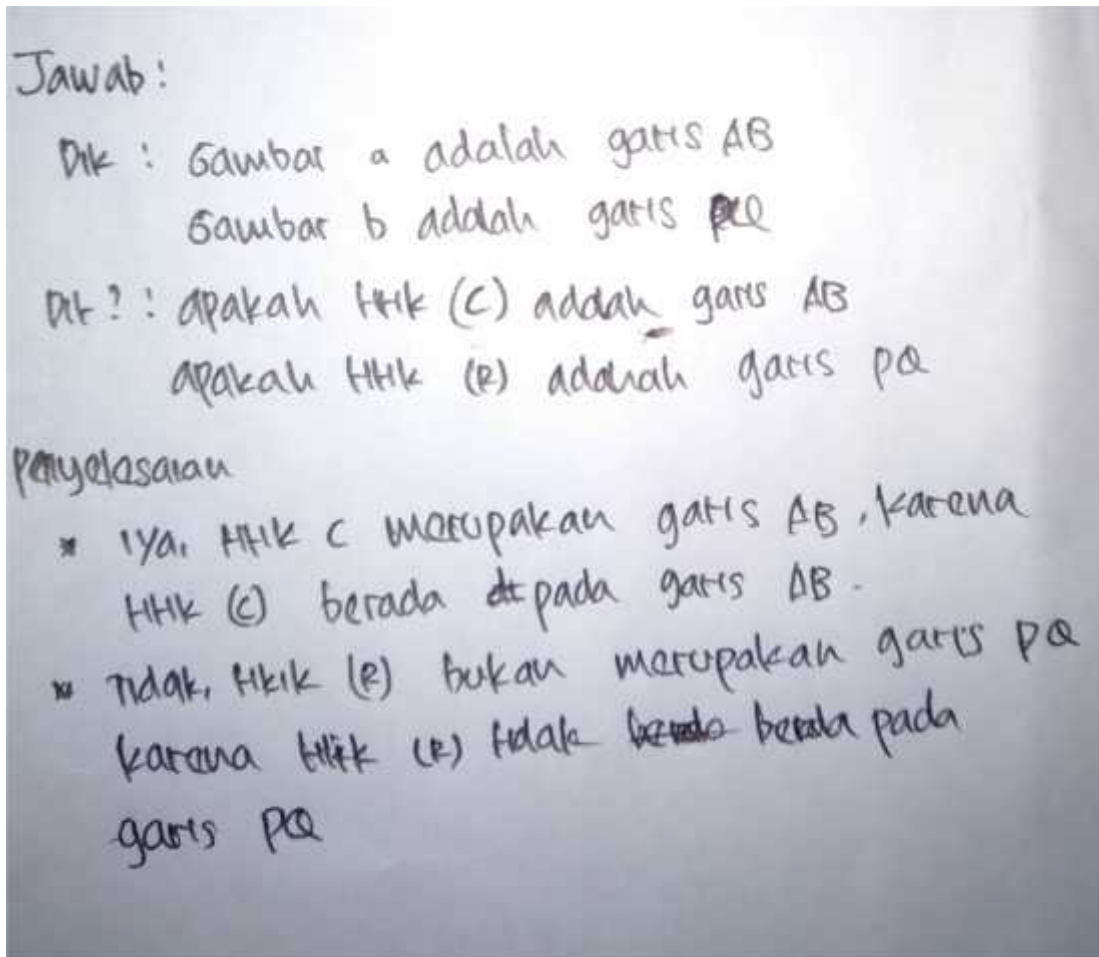 Jawab :
Dik : Gambar a adalah garis AB
Gambar b adalah garis PQ
Dit ? : apakah titik (C) adalah garis AB
apakah titik (R) adalah garis PQ
Penyelesaian
* Iya, titik C merupakan garis AB, karena
titik (C) berada pada garis AB.
* Tidak, titik (R) bukan merupakan garis PQ
karena titik (R) tidak berada pada
garis PQ